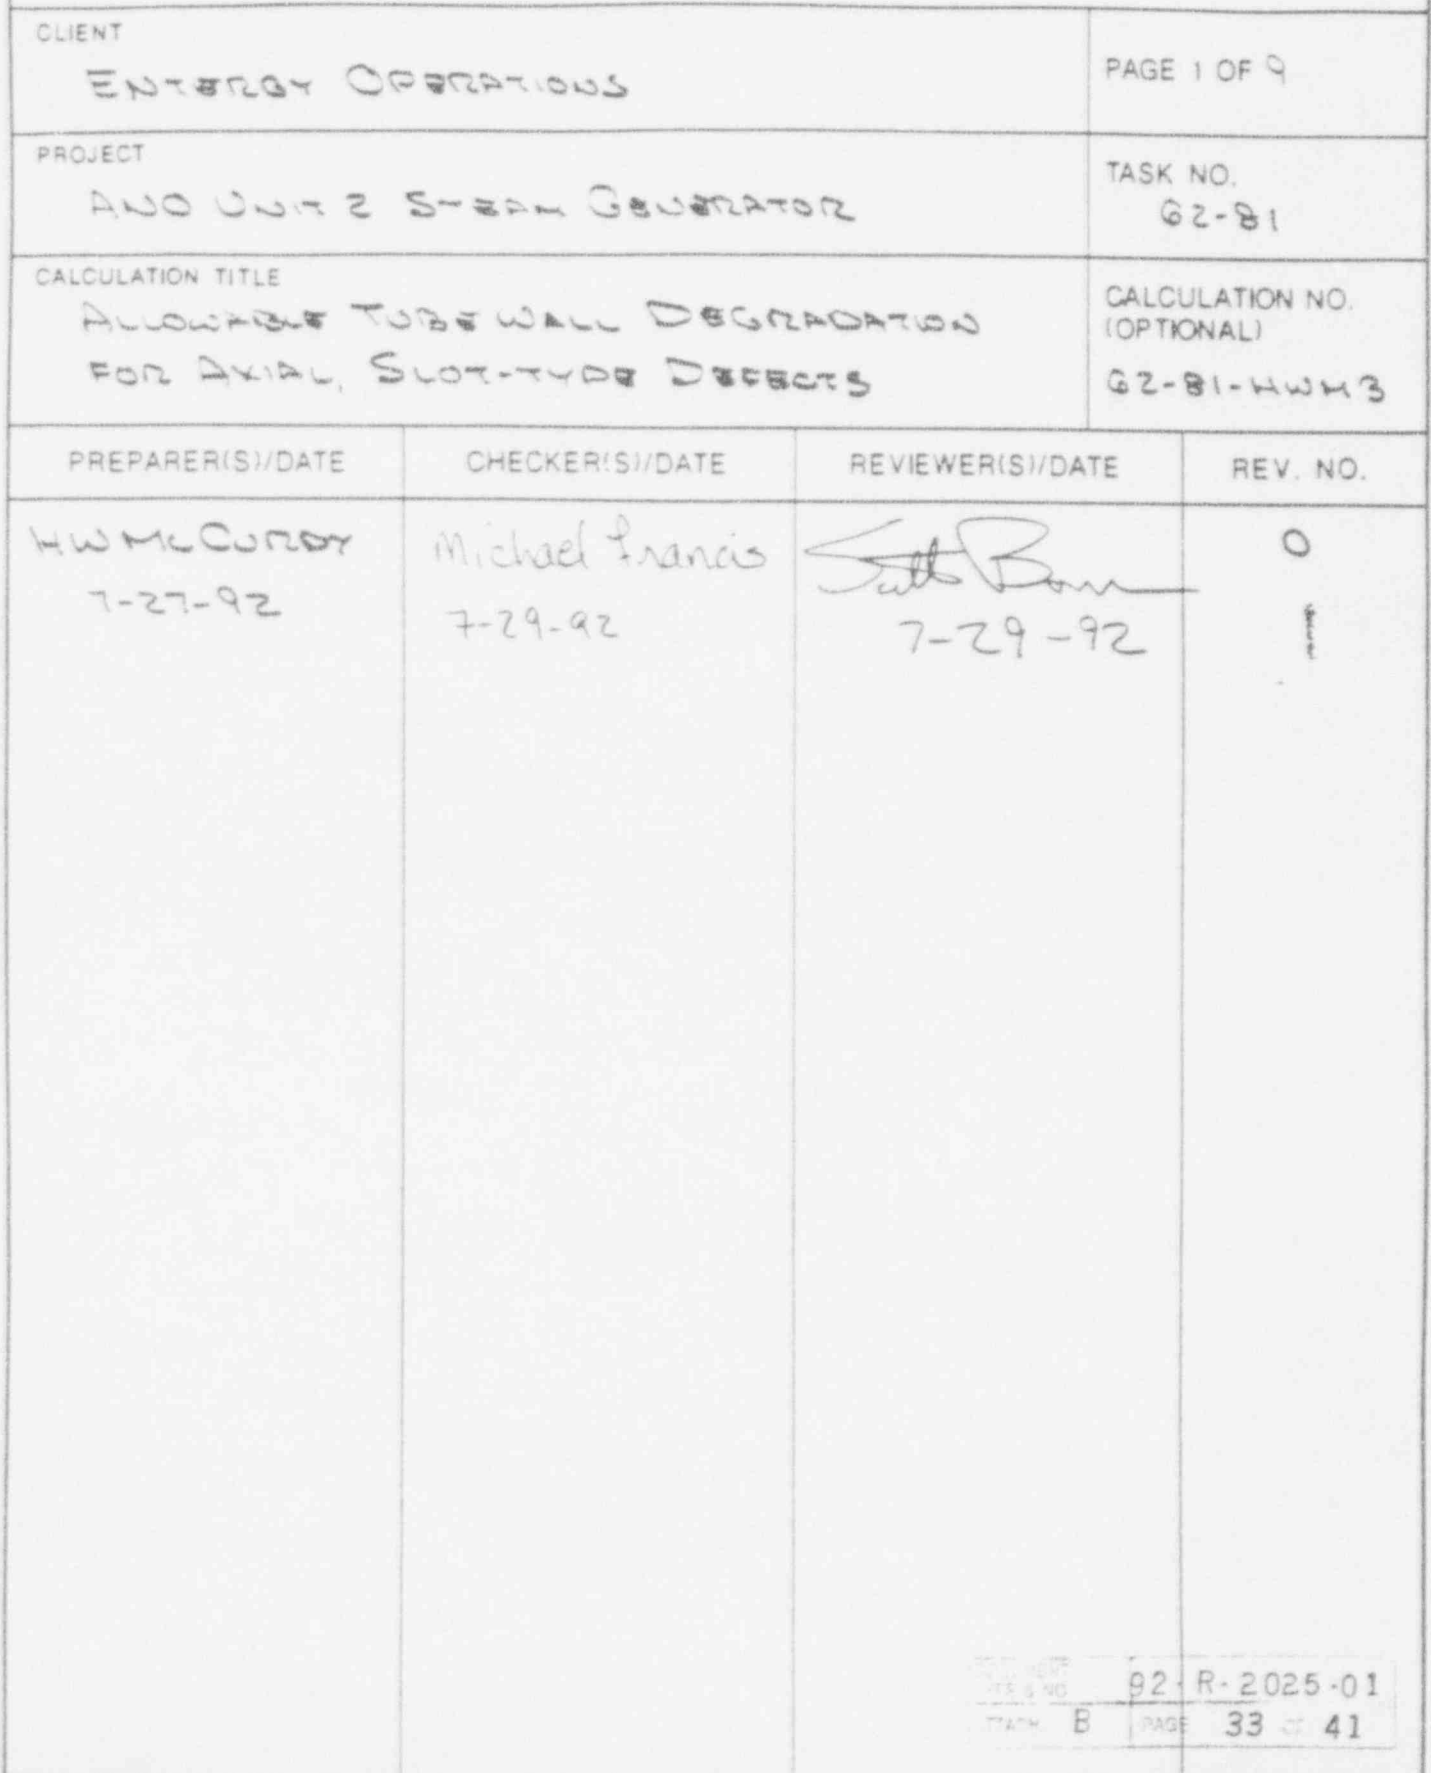 CLIENT
ENTERGY OPERATIONS
PAGE 1 OF 9
PROJECT
ANO UNIT 2 STEAM GENERATOR
TASK NO.
62-81
CALCULATION TITLE
ALLOWABLE TUBE WALL DEGRADATION
FOR AXIAL, SLOT-TYPE DEFECTS
CALCULATION NO.
(OPTIONAL)
62-81-HWM3
PREPARER(S)/DATE
CHECKER(S)/DATE
REVIEWER(S)/DATE
REV. NO.
HW McCURDY
7-27-92
Michael Francis
7-29-92
7-29-92
0
92-R-2025-01
B PAGE 33 41